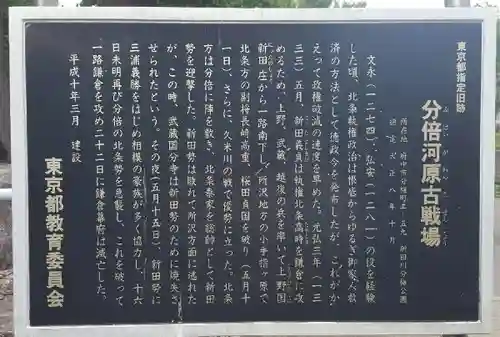 東京都指定旧跡
分倍河原古戦場
ぶばいがわらこせんじょう
所在地 府中市分梅町 新田川分梅公園
指定 大正八年十月
文永(一二七四)、弘安(一二八一)の役を経験
した頃、北条執権政治は根底からゆるぎ御家人救
済の方法として徳政令を発布したが、これがか
えって政権破滅の速度を早めた。元弘三年(一三
三三)五月、新田義貞は執権北条高時を鎌倉に攻
めるため、上野、武蔵、越後の兵を率いて上野国
新田庄から一路南下し、所沢地方の小手指ヶ原で
北条方の副将長崎高重、桜田貞国を破り(五月十
一日)、さらに、久米川の戦で優勢に立った。北条
方は分倍に陣を敷き、北条泰家を総帥として新田
勢を迎撃した。新田勢は敗れて所沢方面に逃れた
が、この時、武蔵国分寺は新田勢のために焼失さ
せられたという。その夜(五月十五日)、新田勢に
三浦義勝をはじめ相模の豪族が多く協力し、十六
日未明再び分倍の北条勢を急襲し、これを破って
一路鎌倉を攻め二十二日に鎌倉幕府は滅亡した。
平成十年三月 建設
東京都教育委員会